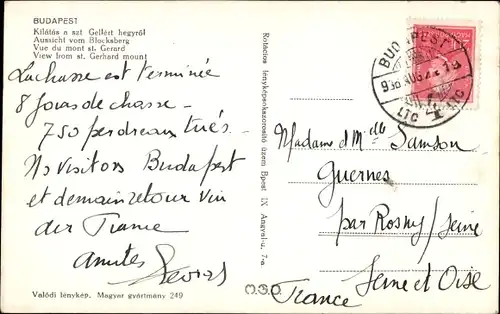 BUDAPEST
Kilátás a szt Gellért hegyről
Aussicht vom Blocksberg
Vue du mont st. Gerard
View from st. Gerhard mount
La chasse est terminée
8 Jours de chasse -
750 perdreaux tués.
Ns visitons Budapest
et demain retour
France
amitiés
Valódi fénykép. Magyar gyártmány 249
Rotációs fényképsokszorosító üzem Bpest IX Angyal-u. 7-a
BUDAPEST
LTC 4 LTC
Madame et Mlle Samson
Guernes
par Rosny s/ Seine
Seine et Oise
France